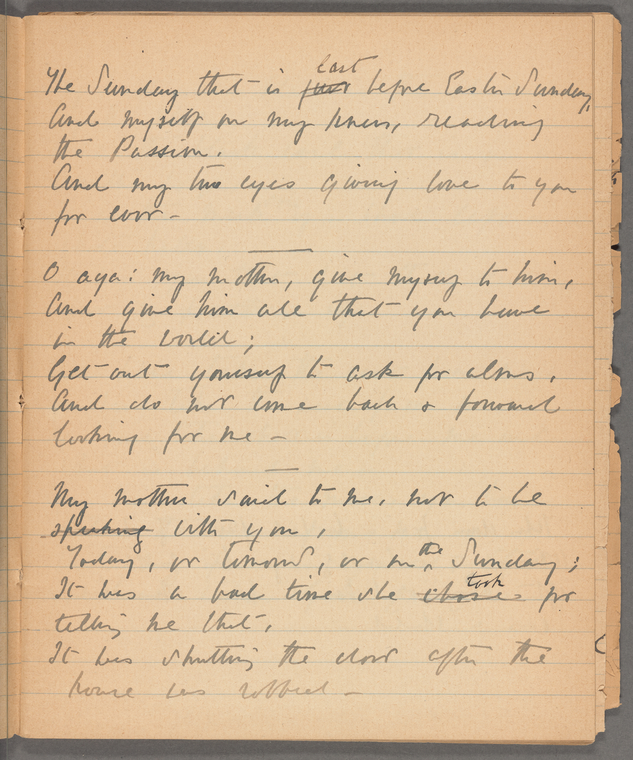 The Sunday that is last before Easter Sunday,
And myself on my knees, reading
the Passion.
And my two eyes giving love to you
for ever -
O aga! my mother, give myself to him,
And give him all that you have
in the world;
Get out yourself to ask for alms,
And do not come back & forward
looking for me -
My mother said to me, not to be
speaking with you,
Today, or tomorrow, or on the Sunday;
It was a bad time she chose took for
telling me that,
It was shutting the door after the
house was robbed -